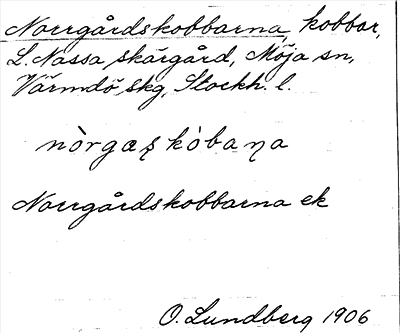 Norrgårdskobbarna, kobbar,
L. Nassa skärgård, Möja sn,
Värmdö skg, Stockh. l.
nòrgæʂkòbaɳa
Norrgårdskobbarna ek
O. Lundberg 1906